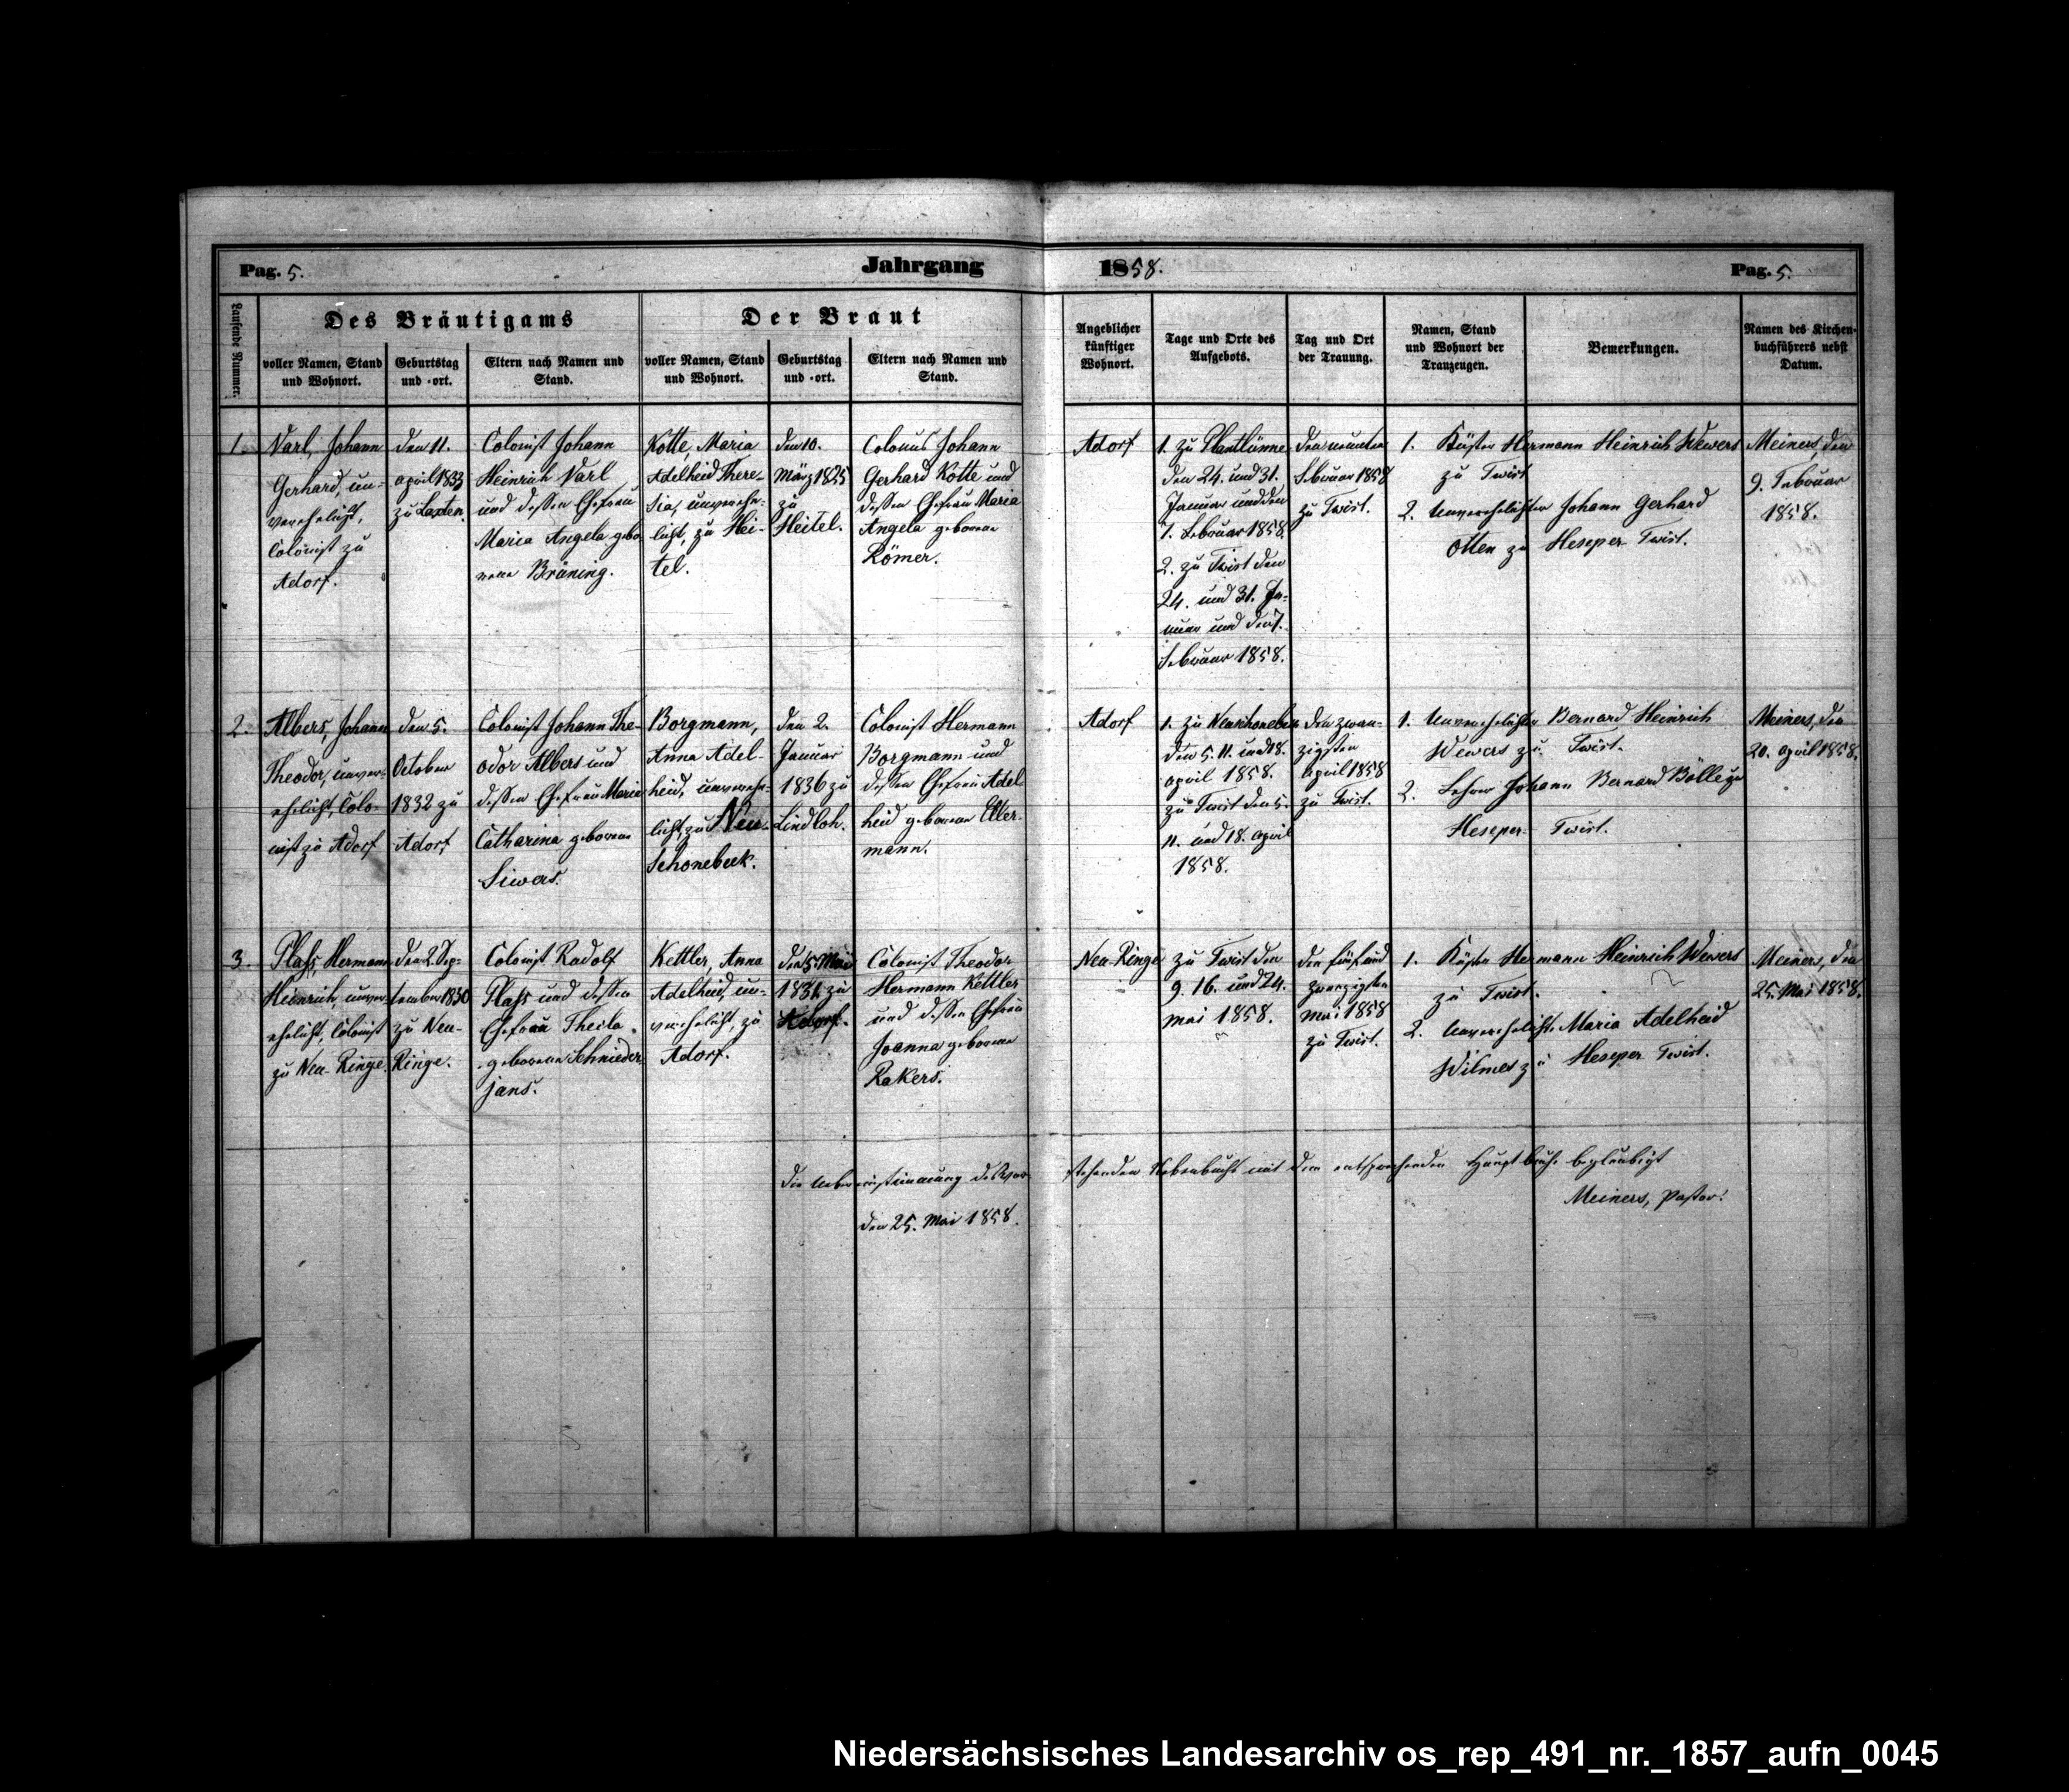 Pag. 5.
Jahrgang 1858.
Pag. 5.
Laufende Nummer.
Des Bräutigams
voller Namen, Stand
und Wohnort.
Geburtstag
und -ort.
Eltern nach Namen und
Stand.
Der Braut
voller Namen, Stand
und Wohnort.
Geburtstag
und -ort.
Eltern nach Namen und
Stand.
Angeblicher
künftiger
Wohnort.
Tage und Orte des
Aufgebots.
Tag und Ort
der Trauung.
Namen, Stand
und Wohnort der
Trauzeugen.
Bemerkungen.
Namen des Kirchen-
buchführers nebst
Datum.
1.
Varl, Johann
Gerhard, un-
verehelicht,
Colonist zu
Adorf.
den 11.
April 1833
zu Laxten.
Colonist Johann
Heinrich Varl
und dessen Ehefrau
Maria Angela gebo-
rene Brüning.
Kotte, Maria
Adelheid There-
sia, unverehe-
licht, zu Hei-
tel.
den 10.
März 1825
zu
Heitel.
Colonus Johann
Gerhard Kotte und
dessen Ehefrau Maria
Angela geborene
Römer.
Adorf
1. zu Plantlünne
den 24. und 31.
Januar und den
7. Februar 1858.
2. zu Twist den
24. und 31. Ja-
nuar und den 7.
Februar 1858.
den neunten
Februar 1858
zu Twist.
1. Küster Hermann Heinrich Wewers
zu Twist
2. Unverehelichter Johann Gerhard
Otten zu Heseper Twist.
Meiners, den
9. Februar
1858.
2.
Albers, Johann
Theodor, unver-
ehelicht, Colo-
nist zu Adorf
den 5.
October
1832 zu
Adorf
Colonist Johann The-
odor Albers und
dessen Ehefrau Maria
Catharina geborene
Siwers.
Borgmann,
Anna Adel-
heid, unverehe-
licht, zu Neu-
Schonebeek.
den 2.
Januar
1836 zu
Lindloh.
Colonist Hermann
Borgmann und
dessen Ehefrau Adel-
heid geborene Eller-
mann.
Adorf
1. zu Neuschonebeek
den 5. 11. und 18.
April 1858.
zu Twist den 5.
11. und 18. April
1858.
den zwan-
zigsten
April 1858
zu Twist.
1. Unverehelichter Bernard Heinrich
Wewers zu Twist.
2. Lehrer Johann Bernard Bölle zu
Heseper Twist.
Meiners, den
20. April 1858.
3.
Plass, Hermann
Heinrich, unver-
ehelicht, Colonist
zu Neu-Ringe.
den 2. Sep-
tember 1830
zu Neu-
Ringe.
Colonist Rudolf
Plass und dessen
Ehefrau Thecla
geborene Schnieder-
jans.
Kettler, Anna
Adelheid, un-
verehelicht, zu
Adorf.
den 5. Mai
zu
Adorf.
Colonist Theodor
Hermann Kettler
und dessen Ehefrau
Joanna geborene
Rakers.
Neu-Ringe
zu Twist den
9. 16. und 24.
Mai 1858.
den fünfund
zwanzigsten
Mai 1858
zu Twist.
1. Küster Hermann Heinrich Wewers
zu Twist.
2. Unverehelichte Maria Adelheid
Wilmes zu Heseper Twist.
Meiners, den
25. Mai 1858.
Die Uebereinstimmung des vor- stehenden Nebenbuchs mit dem entsprechenden Hauptbuche beglaubigt
Meiners, Pastor.
den 25. Mai 1858.
Niedersächsisches Landesarchiv os_rep_491_nr._1857_aufn_0045